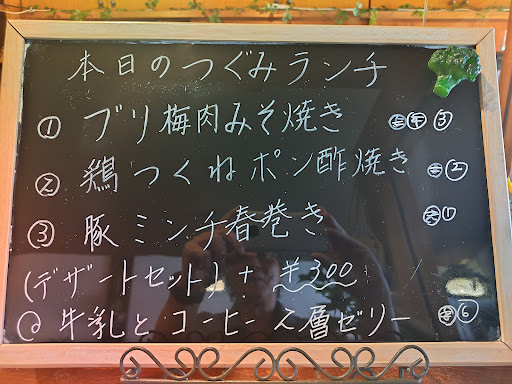 本日のつぐみランチ
① ブリ梅肉みそ焼き ③
② 鶏つくねポン酢焼き ②
③ 豚ミンチ春巻き ①
(デザートセット) + ¥300
@ 牛乳とコーヒー2層ゼリー ⑥